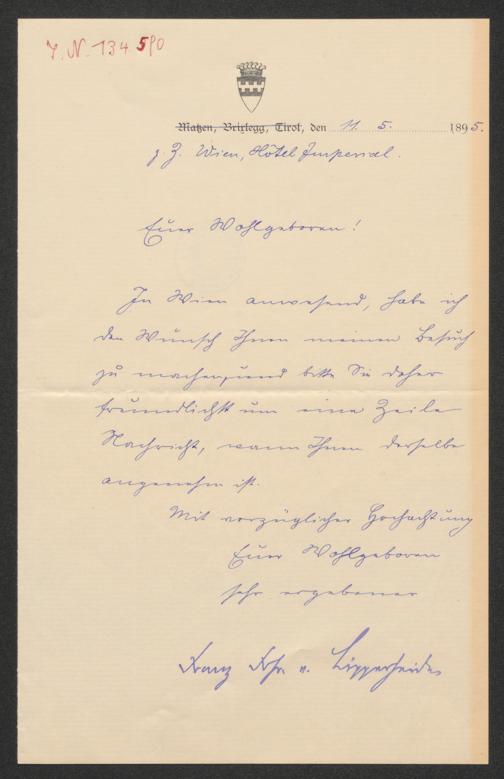 J. N. 134 590
Matzen, Brixlegg, Tirol, den 11. 5. 1895.
z. Z. Wien, Hôtel Imperial.
Euer Wohlgeboren!
In Wien anwesend, habe ich
den Wunsch Ihnen meinen Besuch
zu machen, und bitte Sie daher
freundlichst um eine Zeile
Nachricht, wann Ihnen derselbe
angenehm ist.
Mit vorzüglicher Hochachtung
Euer Wohlgeboren
sehr ergebener
Franz Frhr. v. Lipperheide